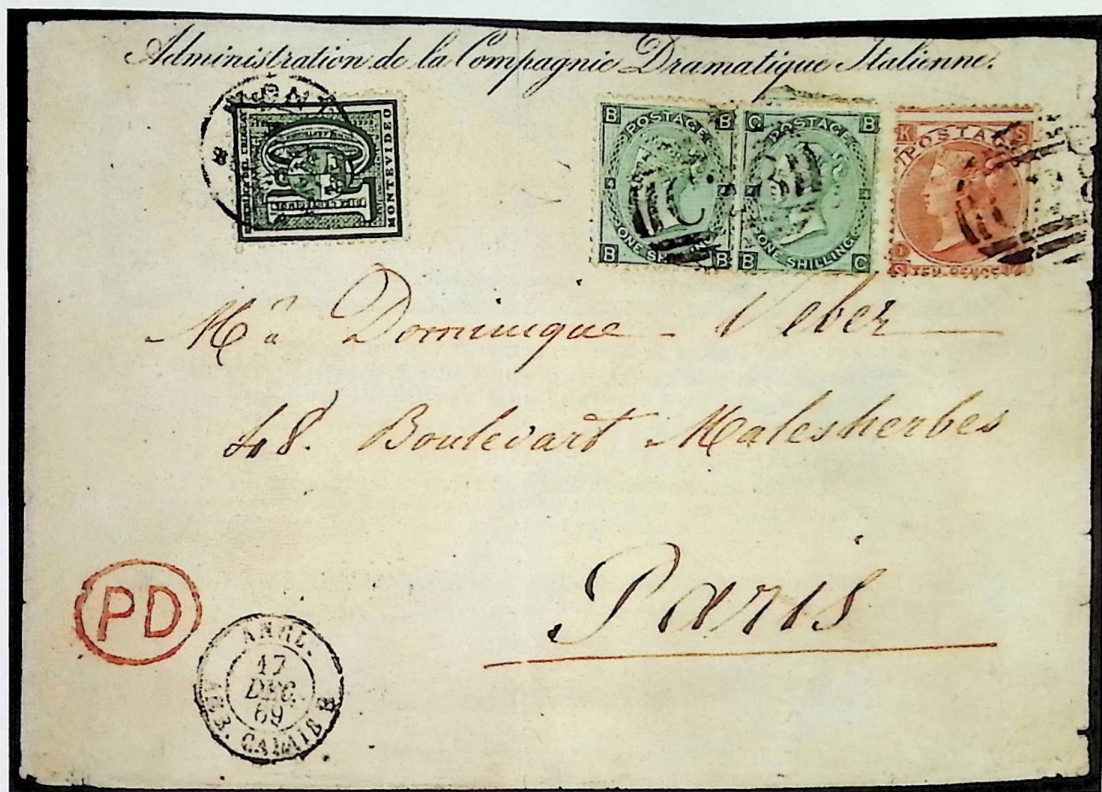 Administration de la Compagnie Dramatique Italienne.
MONTEVIDEO
B POSTAGE B
B B
ONE
C POSTAGE B
B ONE SHILLING C
K POSTAGE S
S TEN PENCE
C
Mr à Dominique Veber
48. Boulevart Malesherbes
Paris
PD
ANGL.
17
DEC.
69
AMB. CALAIS B